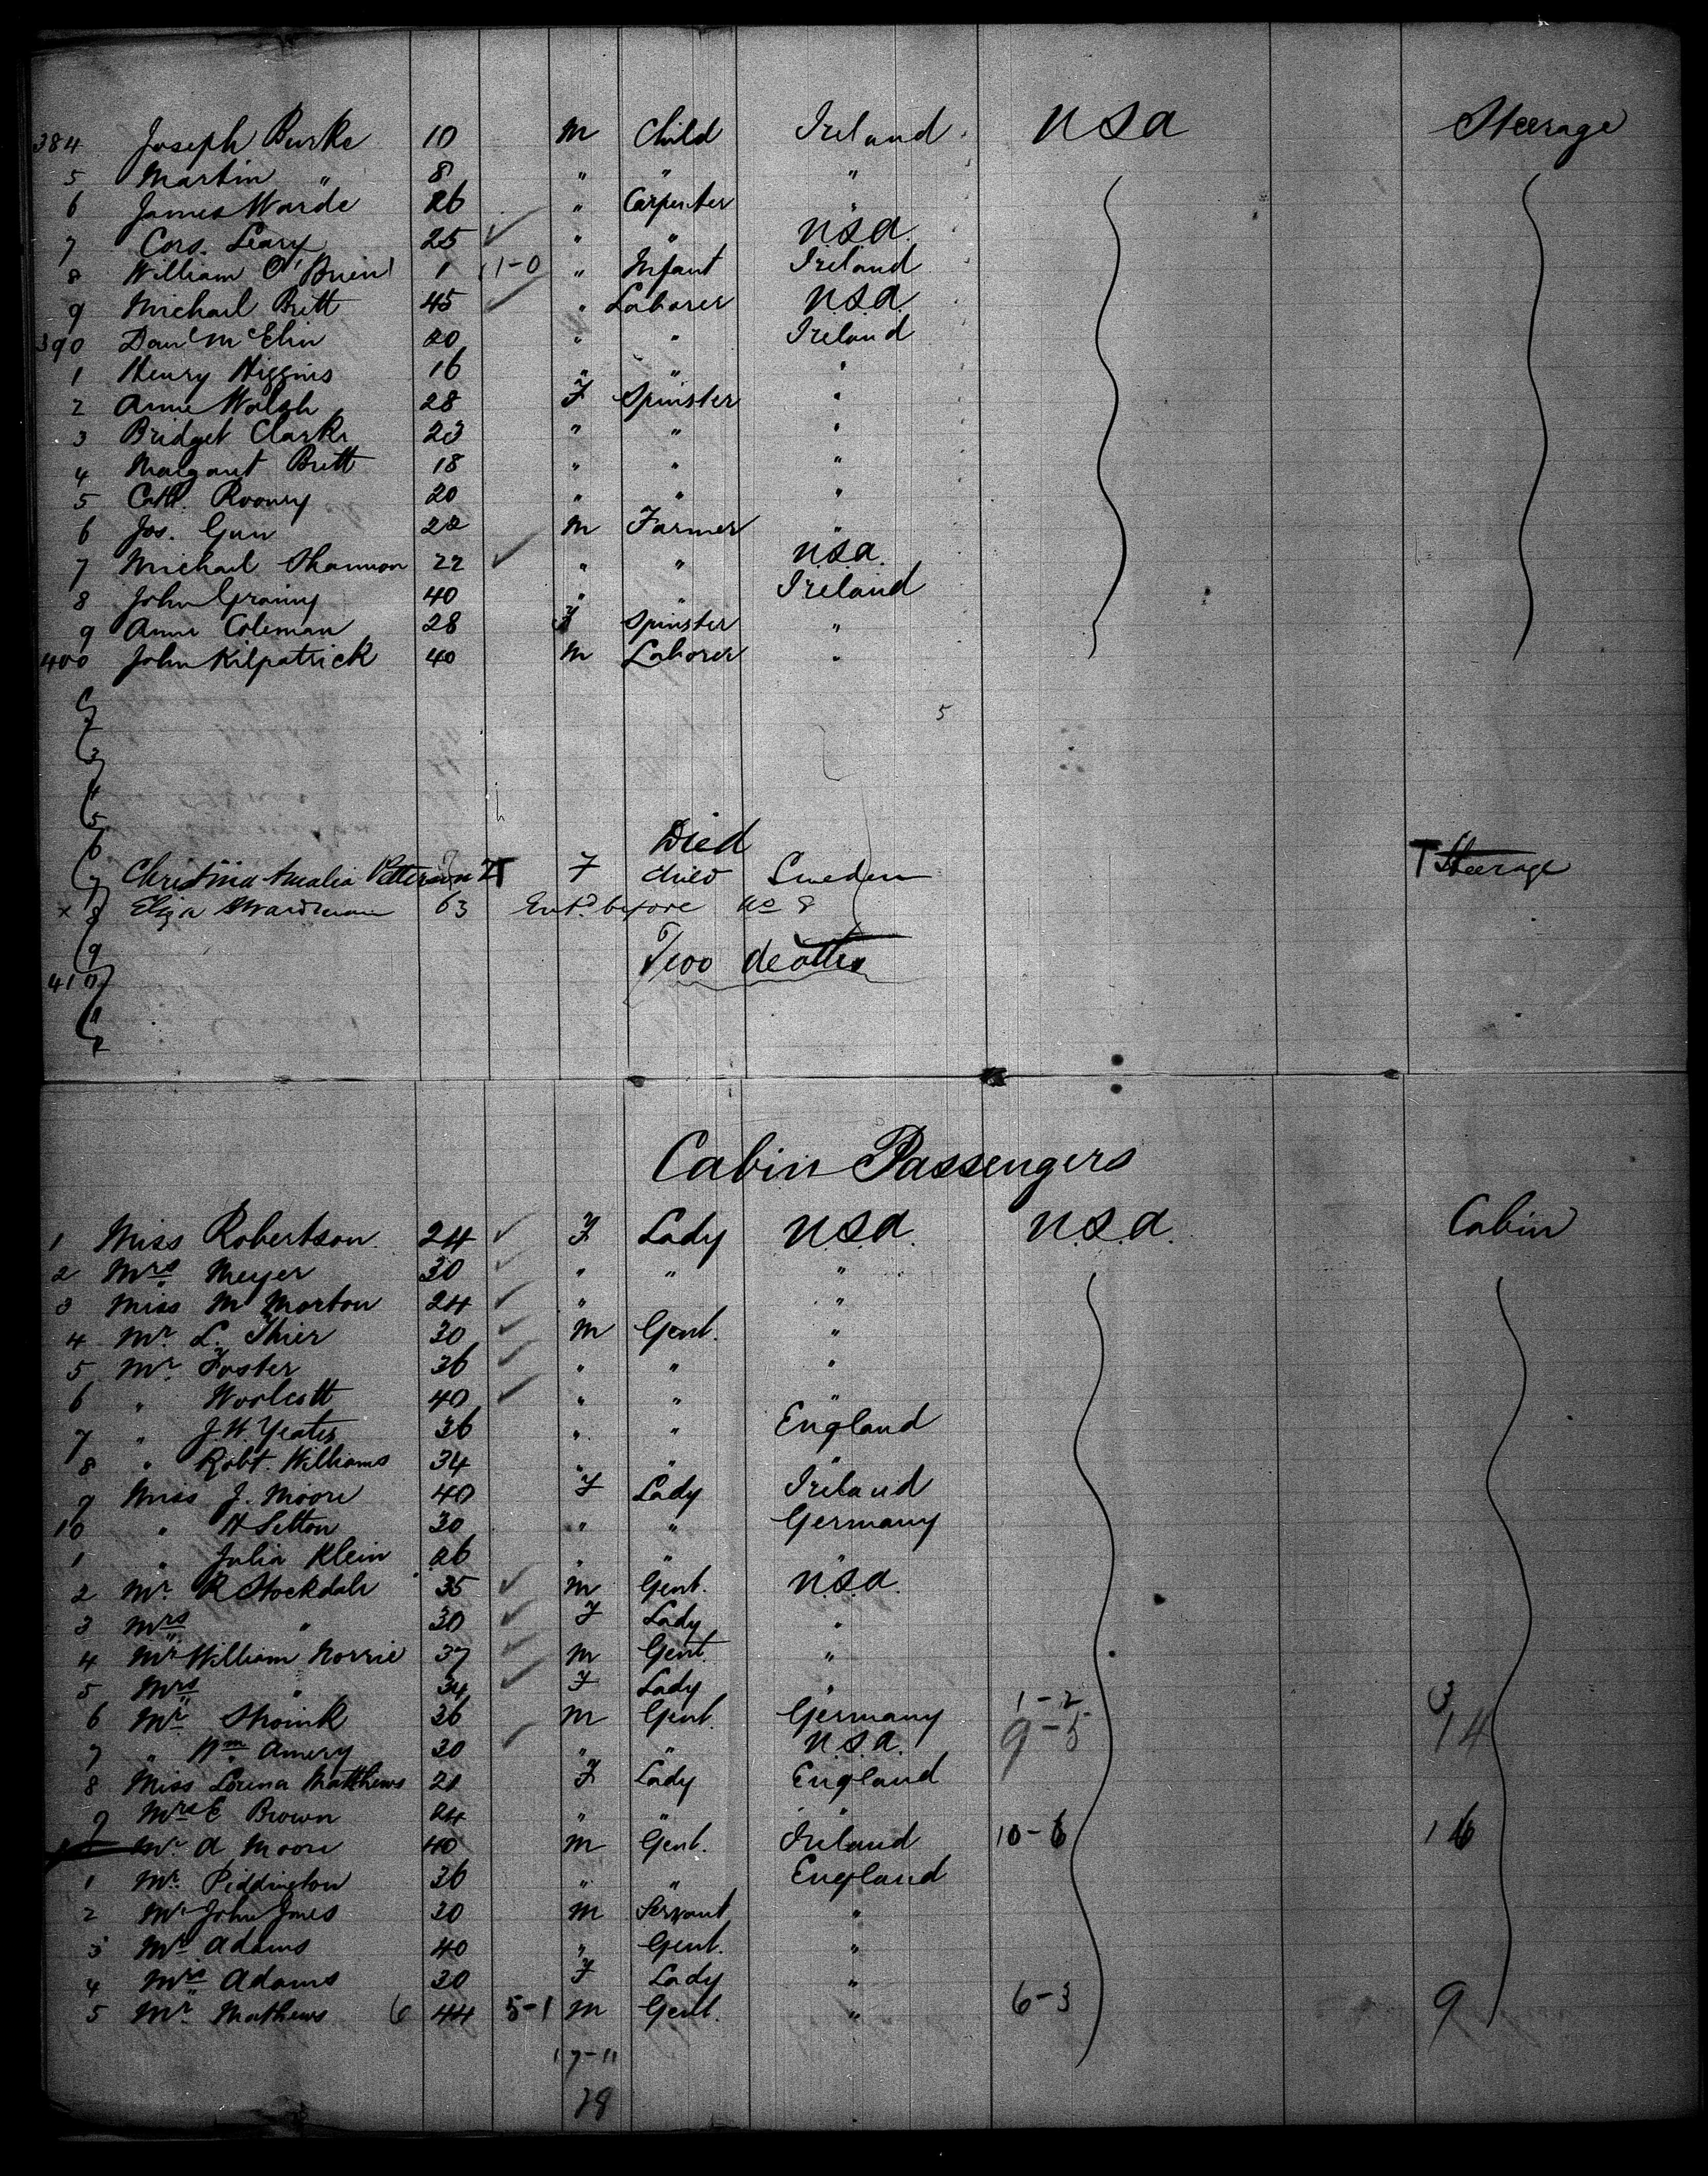 384 Joseph Burke 10 M Child Ireland U.S.A Steerage
5 Martin " 8 " " "
6 James Warde 26 " Carpenter "
7 Cors. Leary 25 ✓ " " U.S.A.
8 William O'Brien 1 1-0 " Infant Ireland
9 Michael Britt 45 ✓ " Laborer U.S.A.
390 Danl McElin 20 " " Ireland
1 Henry Higgins 16 " " "
2 Anne Walsh 28 F Spinster "
3 Bridget Clarke 23 " " "
4 Margaret Britt 18 " " "
5 Cath. Rooney 20 " " "
6 Jos. Gun 22 M Farmer "
7 Michael Shannon 22 ✓ " " U.S.A.
8 John Granny 40 " " Ireland
9 Anne Coleman 28 F Spinster "
400 John Kilpatrick 40 M Laborer "
5
2
3
4
5
6 Died
7 Christina Amalia Petterson F child Sweden Steerage
x 8 Eliza 63 Entd before No 8
9 Two deaths
410
11
2
Cabin Passengers
1 Miss Robertson 24 ✓ F Lady U.S.A. U.S.A. Cabin
2 Mrs Meyer 30 ✓ " " "
3 Miss M Morton 24 ✓ " "
4 Mr. L. Thier 30 ✓ M Gent. "
5 Mr. Foster 36 ✓ " " "
6 " Woolcott 40 ✓ " " "
7 " J.W. Yeates 36 " " England
8 " Robt. Williams 34 " " "
9 Miss J. Moore 40 F Lady Ireland
10 " H Sitton 30 " " Germany
1 " Julia Klein 26 " " "
2 Mr. R Stockdale 35 ✓ M Gent. U.S.A.
3 Mrs " 30 ✓ F Lady "
4 Mr William Norrie 37 ✓ M Gent. "
5 Mrs " 34 ✓ F Lady " 1-2 3
6 Mr Shoink 36 M Gent. Germany 9-5 14
7 " Wm Amery 30 ✓ " " U.S.A.
8 Miss Lorina Matthews 21 F Lady England
9 Mrs E Brown 24 " " "
Mr A Moore 40 M Gent. Ireland 10-6 16
1 Mr. Piddington 36 " " England
2 Mr John Jones 30 M Servant "
3 Mr Adams 40 " Gent. "
4 Mrs Adams 30 F Lady "
5 Mr. Mathews 6 44 5-1 M Gent. " 6-3 9
17-11
28